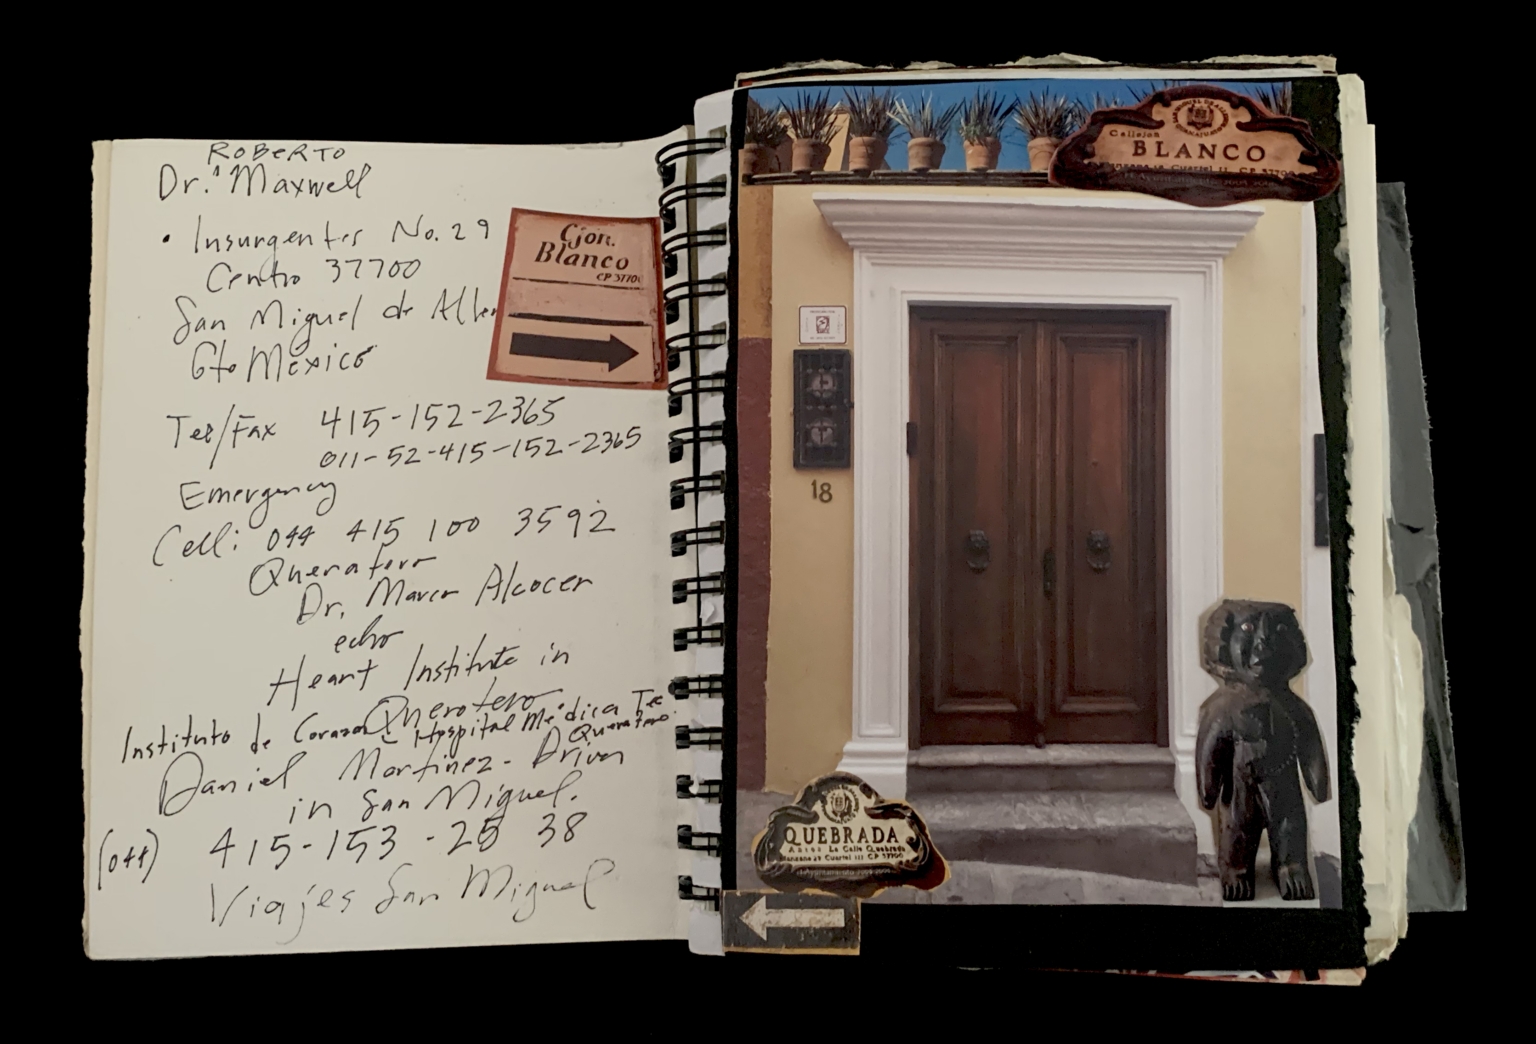 ROBERTO
Dr. Maxwell
• Insurgentes No. 29
Centro 37700
San Miguel de Allen
Gto México
Tel/Fax 415-152-2365
011-52-415-152-2365
Emergency
Cell: 044 415 100 3592
Queretero
Dr. Marco Alcocer
echo
Heart Institute in
Queretero
Instituto de Corazon
Hospital Médica Tec
Queretero
Daniel Martinez - Driver
in San Miguel.
(044) 415-153-28 38
Viajes San Miguel
Cjon.
Blanco
CP 37700
Callejon
BLANCO
Manzana 12 Cuartel II. CP 37700
18
QUEBRADA
Antes La Calle Quebrada
Manzana 29 Cuartel III CP 37700